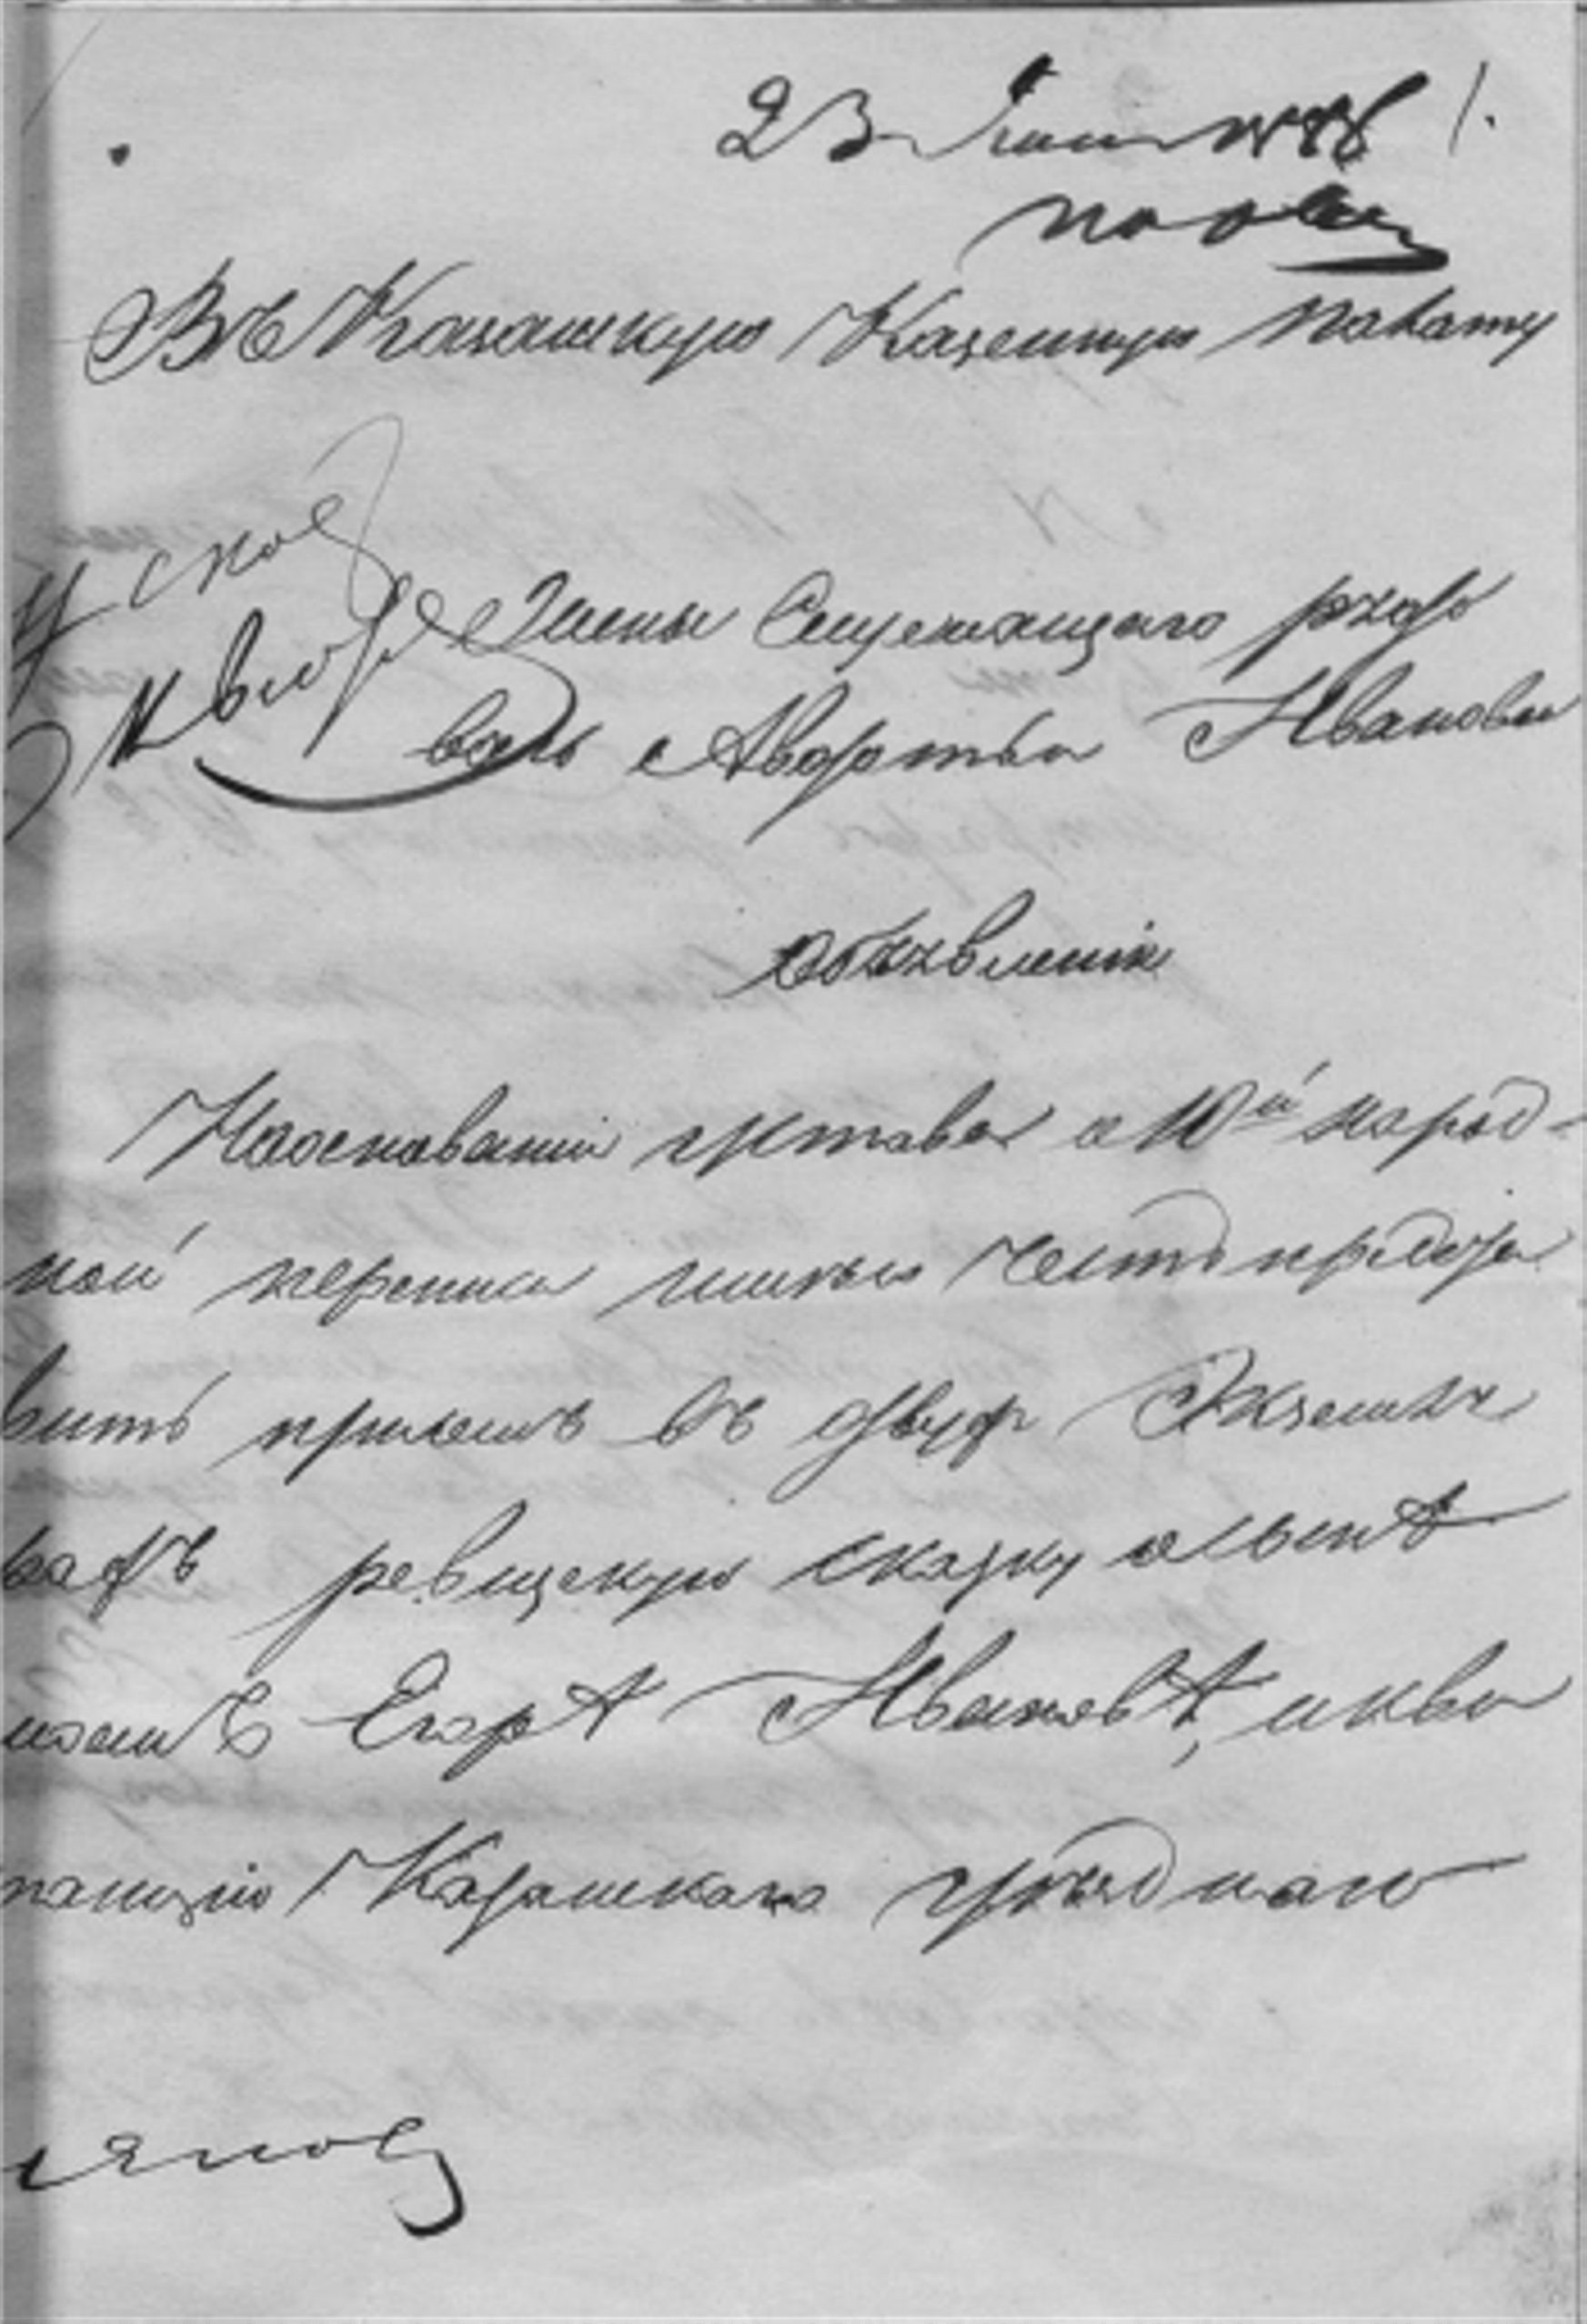 23 Июня 1858
Въ Казанскую Казенную палату
Жены Служащаго рядо
ваго Авдотьи Ивановы
Объявленіе
На основаніи устава о 10й народ-
ной переписи имѣю честь предста
вить при семъ въ двух Экземпля
рахъ ревизскую сказку о сынѣ
моемъ Егорѣ Ивановѣ, и кви
танцію Казанскаго уѣзднаго